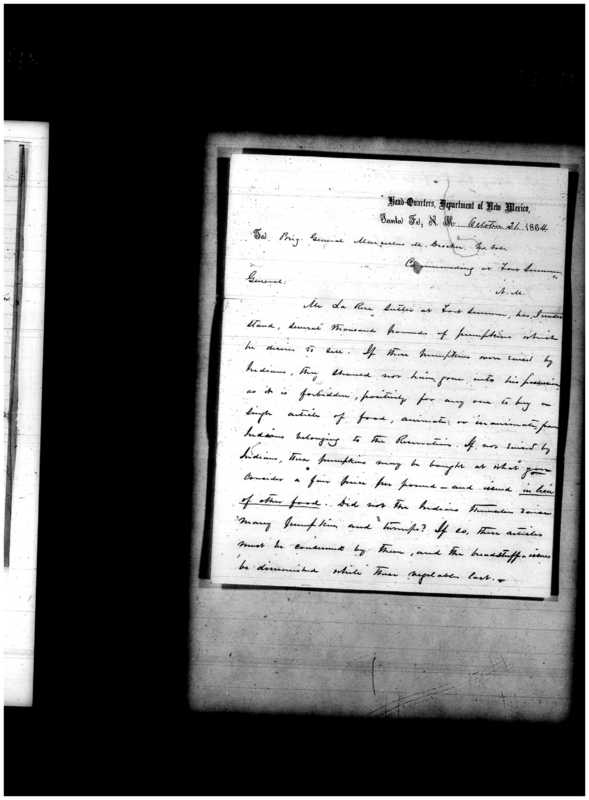 Head-Quarters, Department of New Mexico,
Santa Fé, N. M. October 21, 1864
To Brig. General Marcellus M. Crocker U.S. Vols.
Commanding at Fort Sumner,
N. M.
General:
Mr La Rue, Sutler at Fort Sumner, has, I under
stand, several thousand pounds of pumpkins which
he desires to sell. If these pumpkins were raised by
Indians, they should not have gone into his possession
as it is forbidden, positively for any one to buy a
single article of food, animate, or inanimate, from
Indians belonging to the Reservation. If not raised by
Indians, these pumpkins may be bought at what you
consider a fair price per pound – and issued in lieu
of other food. Did not the Indians themselves raise
many pumpkins and turnips? If so, these articles
must be consumed by them, and the breadstuff issues
be diminished while these vegetables last. –